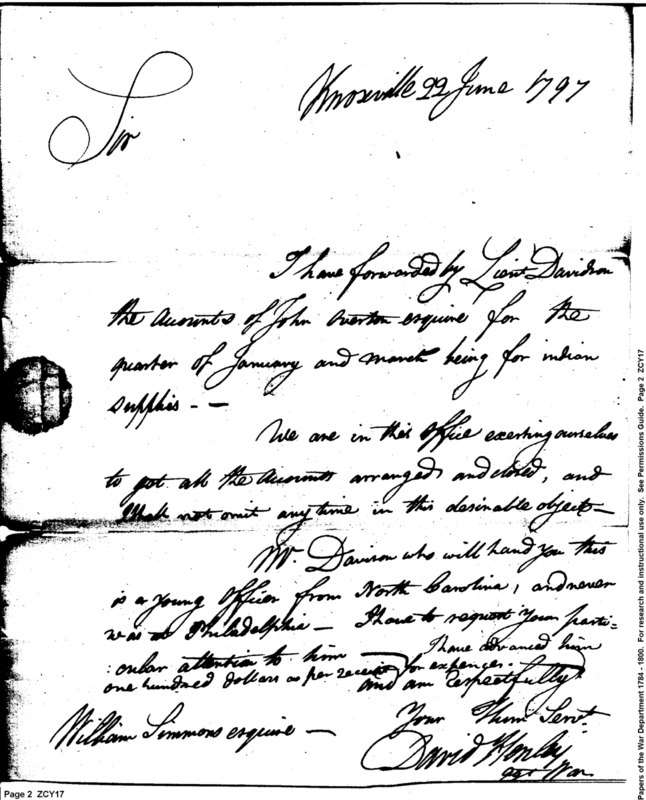 Knoxville 22 June 1797
Sir
I have forwarded by Lieut Davidson
the Accounts of John Overton esquire for the
quarter of January and march being for indian
supplies - -
We are in this Office exerting ourselves
to get all the Accounts arranged and closed, and
shall not omit any time in this desirable object -
Mr. Davison who will hand you this
is a young Officer from North Carolina, and never
was at Philadelphia - I have to request your parti:
:cular attention to him - I have advanced him
one hundred dollars as per receipt for expences.
and am respectfully
Your Hum Servt
William Simmons esquire -
David Henley
agt War
Page 2 ZCY17
Papers of the War Department 1784 - 1800. For research and instructional use only. See Permissions Guide. Page 2 ZCY17